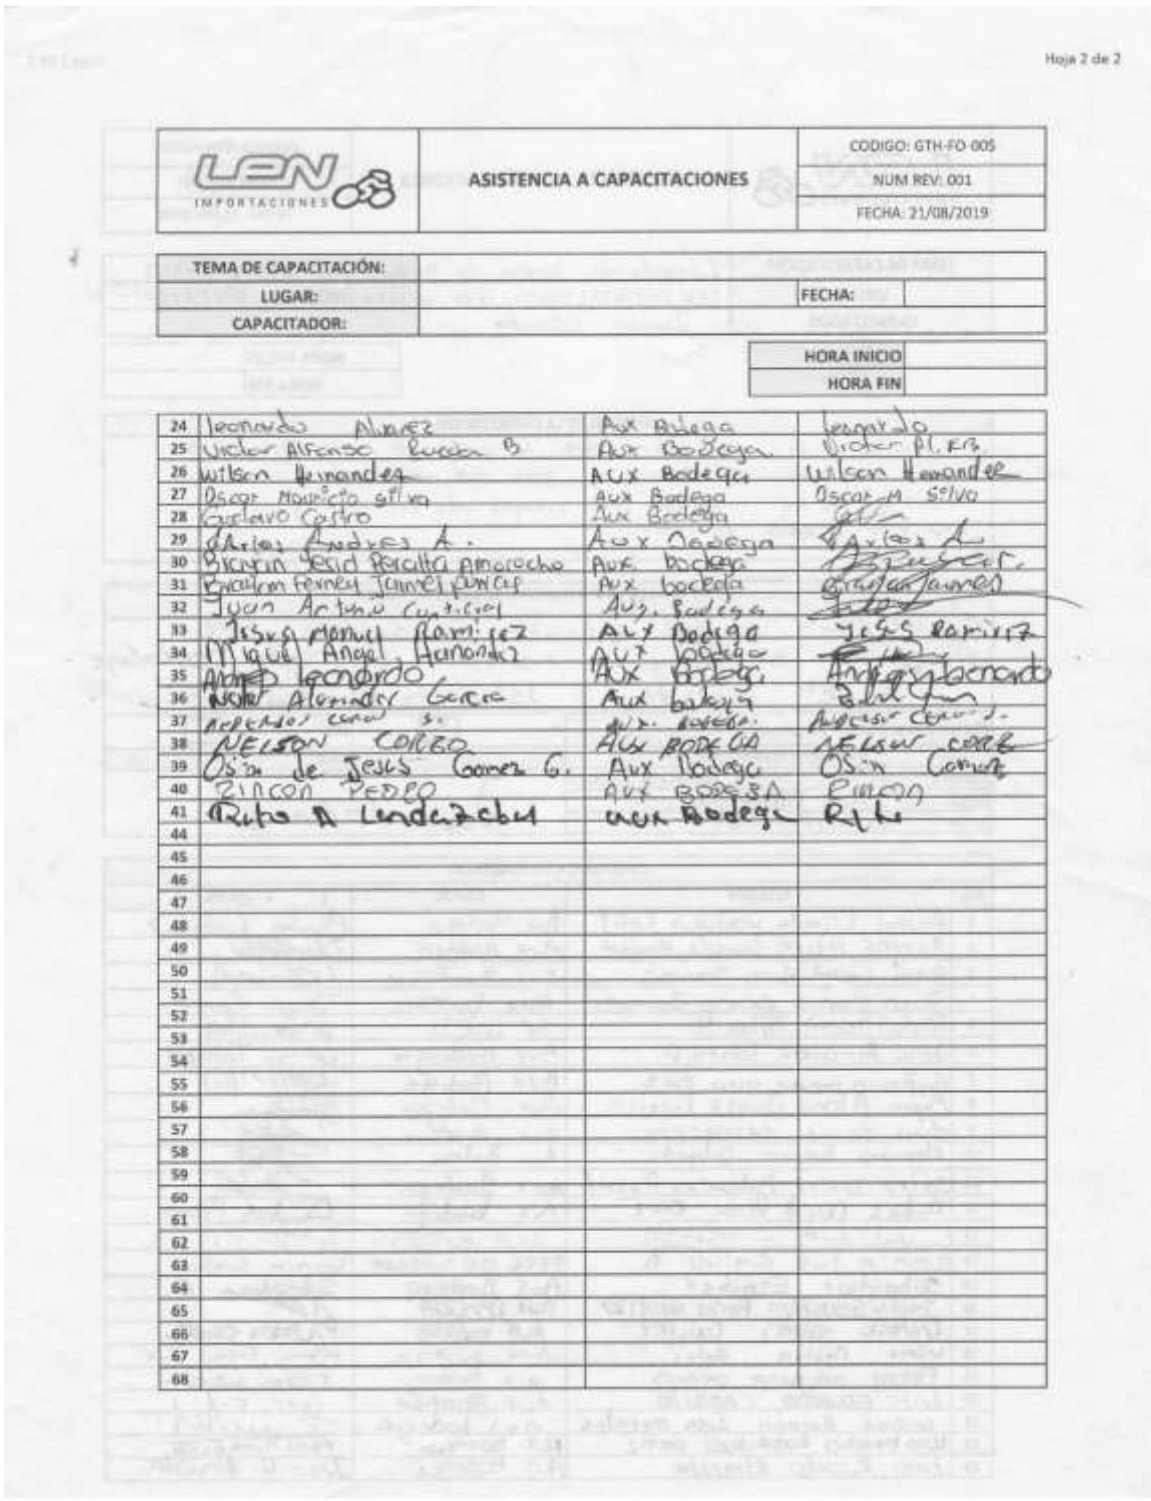 Hoja 2 de 2
LEN
IMPORTACIONES
ASISTENCIA A CAPACITACIONES
CODIGO: GTH-FO-005
NUM REV: 001
FECHA: 21/08/2019
TEMA DE CAPACITACIÓN:
LUGAR: FECHA:
CAPACITADOR:
HORA INICIO
HORA FIN
24 leonardo Alvarez Aux Bodega leonardo
25 Victor Alfonso Rueda B. Aux Bodega
26 Wilson Hernandez Aux Bodega Wilson Hernandez
27 Oscar Mauricio Silva Aux Bodega Oscar M Silva
28 Gustavo Castro Aux Bodega
29 Carlos Andres A. Aux Bodega Carlos A
30 Brayan Yesid Peralta Amorocho Aux. bodega
31 Brayan Ferney Jaimes Aux bodega Brayan Jaimes
32 Juan Antonio Aux. Bodega
33 Jesus Manuel Ramirez Aux Bodega Jesus Ramirez
34 Miguel Angel Hernandez Aux bodega
35 Andres leonardo Aux Bodega Andres leonardo
36 Alexander Garcia Aux bodega
37 Aux. BODEGA.
38 NELSON CORZO AUX BODEGA NELSON CORZ
39 Osin de Jesus Gomez G. Aux Bodega Osin Gomez
40 RINCON PEDRO AUX BODEGA RINCON
41 Rito A aux Bodega Rito
44
45
46
47
48
49
50
51
52
53
54
55
56
57
58
59
60
61
62
63
64
65
66
67
68